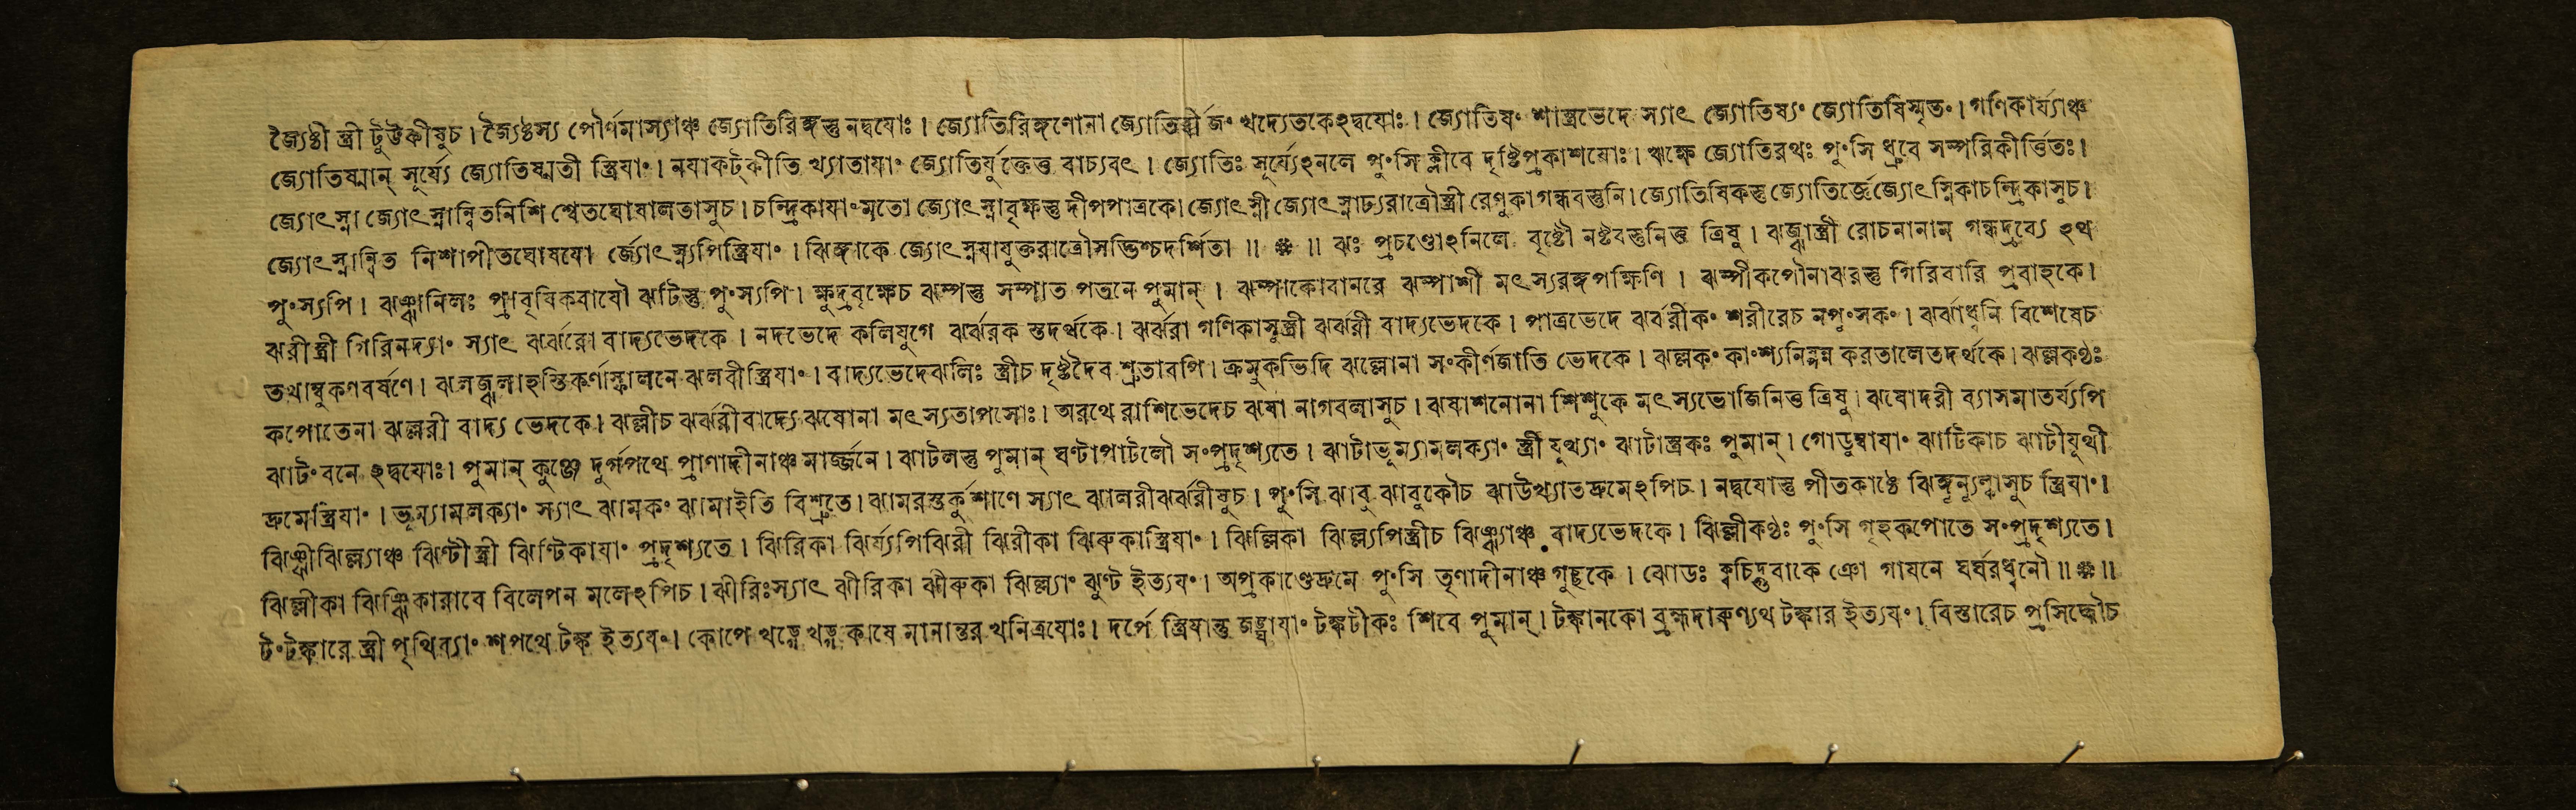 জ্যৈষ্ঠী স্ত্রী টুট্টকীষুচ। জ্যৈষ্ঠস্য পৌর্ণমাস্যাঞ্চ জ্যোতিরিঙ্গস্তু নদ্বযোঃ। জ্যোতিরিঙ্গণোনা জ্যোতির্বীজং খদ্যোতকেঽদ্বযোঃ। জ্যোতিষং শাস্ত্রভেদে স্যাৎ জ্যোতিষ্যং জ্যোতিষিস্মৃতং। গণিকার্য্যাঞ্চ
জ্যোতিষ্মান্ সূর্য্যে জ্যোতিষ্মতী স্ত্রিযাং। নযাকট্কীতি খ্যাতাযাং জ্যোতির্যুক্তেত্ত বাচ্যবৎ। জ্যোতিঃ সূর্য্যেঽনলে পুংসি ক্লীবে দৃষ্টিপ্রকাশযোঃ। ঋক্ষে জ্যোতিরথঃ পুংসি ধ্রুবে সম্পরিকীর্ত্তিতঃ।
জ্যোৎস্না জ্যোৎস্নান্বিতনিশি শ্বেতঘোষালতাসুচ। চন্দ্রিকাযাংমতো জ্যোৎস্নাবৃক্ষস্তু দীপপাত্রকে। জ্যোৎস্নী জ্যোৎস্নাঢ্যরাত্রৌস্ত্রী রেণুকাগন্ধবস্তুনি। জ্যোতিষিকস্তু জ্যোতির্জ্ঞেজ্যোৎস্নিকাচন্দ্রিকাসুচ।
জ্যোৎস্নান্বিত নিশাপীতঘোষযো র্জ্যোৎস্ন্যপিস্ত্রিযাং। ঝিঙ্গাকে জ্যোৎস্নযাযুক্তরাত্রৌসদ্ভিশ্চদর্শিতা॥ ❈॥ ঝঃ প্রচণ্ডোঽনিলে বৃষ্টৌ নষ্টবস্তুনিত্ত ত্রিষু। ঝজ্ঝাস্ত্রী রোচনানান গন্ধদ্রব্যে ঽথ
পুংস্যপি। ঝঞ্ঝানিলঃ প্রাবৃষিকবাযৌ ঝটিস্তু পুংস্যপি। ক্ষুদ্রবৃক্ষেচ ঝম্পস্তু সম্পাত পতনে পুমান্। ঝম্পাকোবানরে ঝম্পাশী মৎস্যরঙ্গপক্ষিণি। ঝম্পীকপৌনাঝরস্তু গিরিবারি প্রবাহকে।
ঝরীস্ত্রী গিরিনদ্যাং স্যাৎ ঝর্ঝরো বাদ্যভেদকে। নদভেদে কলিযুগে ঝর্ঝরক স্তদর্থকে। ঝর্ঝরা গণিকাসুস্ত্রী ঝর্ঝরী বাদ্যভেদকে। পাত্রভেদে ঝর্ঝরীকং শরীরেচ নপুংসকং। ঝর্ঝাধ্বনি বিশেষেচ
তথাম্বুকণবর্ষণে। ঝলজ্ঝলাহস্তিকর্ণাস্ফালনে ঝলবীস্ত্রিযাং। বাদ্যভেদেঝলিঃ স্ত্রীচ দৃষ্টদৈব শ্রুতাবপি। ক্রমুকভিদি ঝল্লোনা সংকীর্ণজাতি ভেদকে। ঝল্লকং কাংশ্যনির্ম্মিত করতালেতদর্থকে। ঝল্লকণ্ঠঃ
কপোতেনা ঝল্লরী বাদ্য ভেদকে। ঝল্লীচ ঝর্ঝরীবাদ্যে ঝষোনা মৎস্যতাপসোঃ। অরথে রাশিভেদেচ ঝষা নাগবলাসুচ। ঝষাশনোনা শিশুকে মৎস্যভোজিনিত্ত ত্রিষু। ঝষোদরী ব্যাসমাতর্য্যপি
ঝাটং বনে ঽদ্বযোঃ। পুমান্ কুঞ্জে দুর্গপথে প্রাণাদীনাঞ্চ মার্জ্জনে। ঝাটলস্তু পুমান্ ঘণ্টাপাটলৌ সংপ্রদৃশ্যতে। ঝাটাভূম্যামলক্যাং স্ত্রী যুথ্যাং ঝাটাস্ত্রকঃ পুমান্। গোডুম্বাযাং ঝাটিকাচ ঝাটীযূথী
দ্রুমেস্ত্রিযাং। ভূম্যামলক্যাং স্যাৎ ঝামকং ঝামাইতি বিশ্রুতে। ঝামরস্তর্কুশাণে স্যাৎ ঝালরীঝর্ঝরীষুচ। পুংসি ঝাবু ঝাবুকৌচ ঝাউখ্যাতদ্রুমেঽপিচ। নদ্বযোস্তু পীতকাষ্ঠে স্ত্রিযাং।
ঝিঞ্ঝীঝিল্ল্যাঞ্চ ঝিণ্টীস্ত্রী ঝিণ্টিকাযাং প্রদৃশ্যতে। ঝিরিকা ঝির্য্যপিঝিরী ঝিরীকা ঝিরুকাস্ত্রিযাং। ঝিল্লিকা ঝিল্ল্যপিস্ত্রীচ ঝিঞ্ঝ্যাঞ্চ বাদ্যভেদকে। ঝিল্লীকণ্ঠঃ পুংসি গৃহকপোতে সংপ্রদৃশ্যতে।
ঝিল্লীকা ঝিঞ্ঝিকারাবে বিলেপন মলেঽপিচ। ঝীরিঃস্যাৎ ঝীরিকা ঝীরুকা ঝিল্ল্যাং ঝুণ্ট ইত্যযং। অপ্রকাণ্ডেদ্রুমে পুংসি তৃণাদীনাঞ্চ গুচ্ছকে। ঝোডঃ ক্বচিদ্গুবাকে ঞো গাযনে ঘর্ঘরধ্বনৌ॥❈॥
টংটঙ্কারে স্ত্রী পৃথিব্যাং শপথে টঙ্ক ইত্যযং। কোপে খড়্গে খড়্গ কোষে মানান্তর খনিত্রযোঃ। দর্পে স্ত্রিযান্তু জঙ্ঘাযাং টঙ্কটীকঃ শিবে পুমান্। টঙ্কানকো ব্রহ্মদারুণ্যথ টঙ্কার ইত্যযং। বিস্তারেচ প্রসিদ্ধৌচ